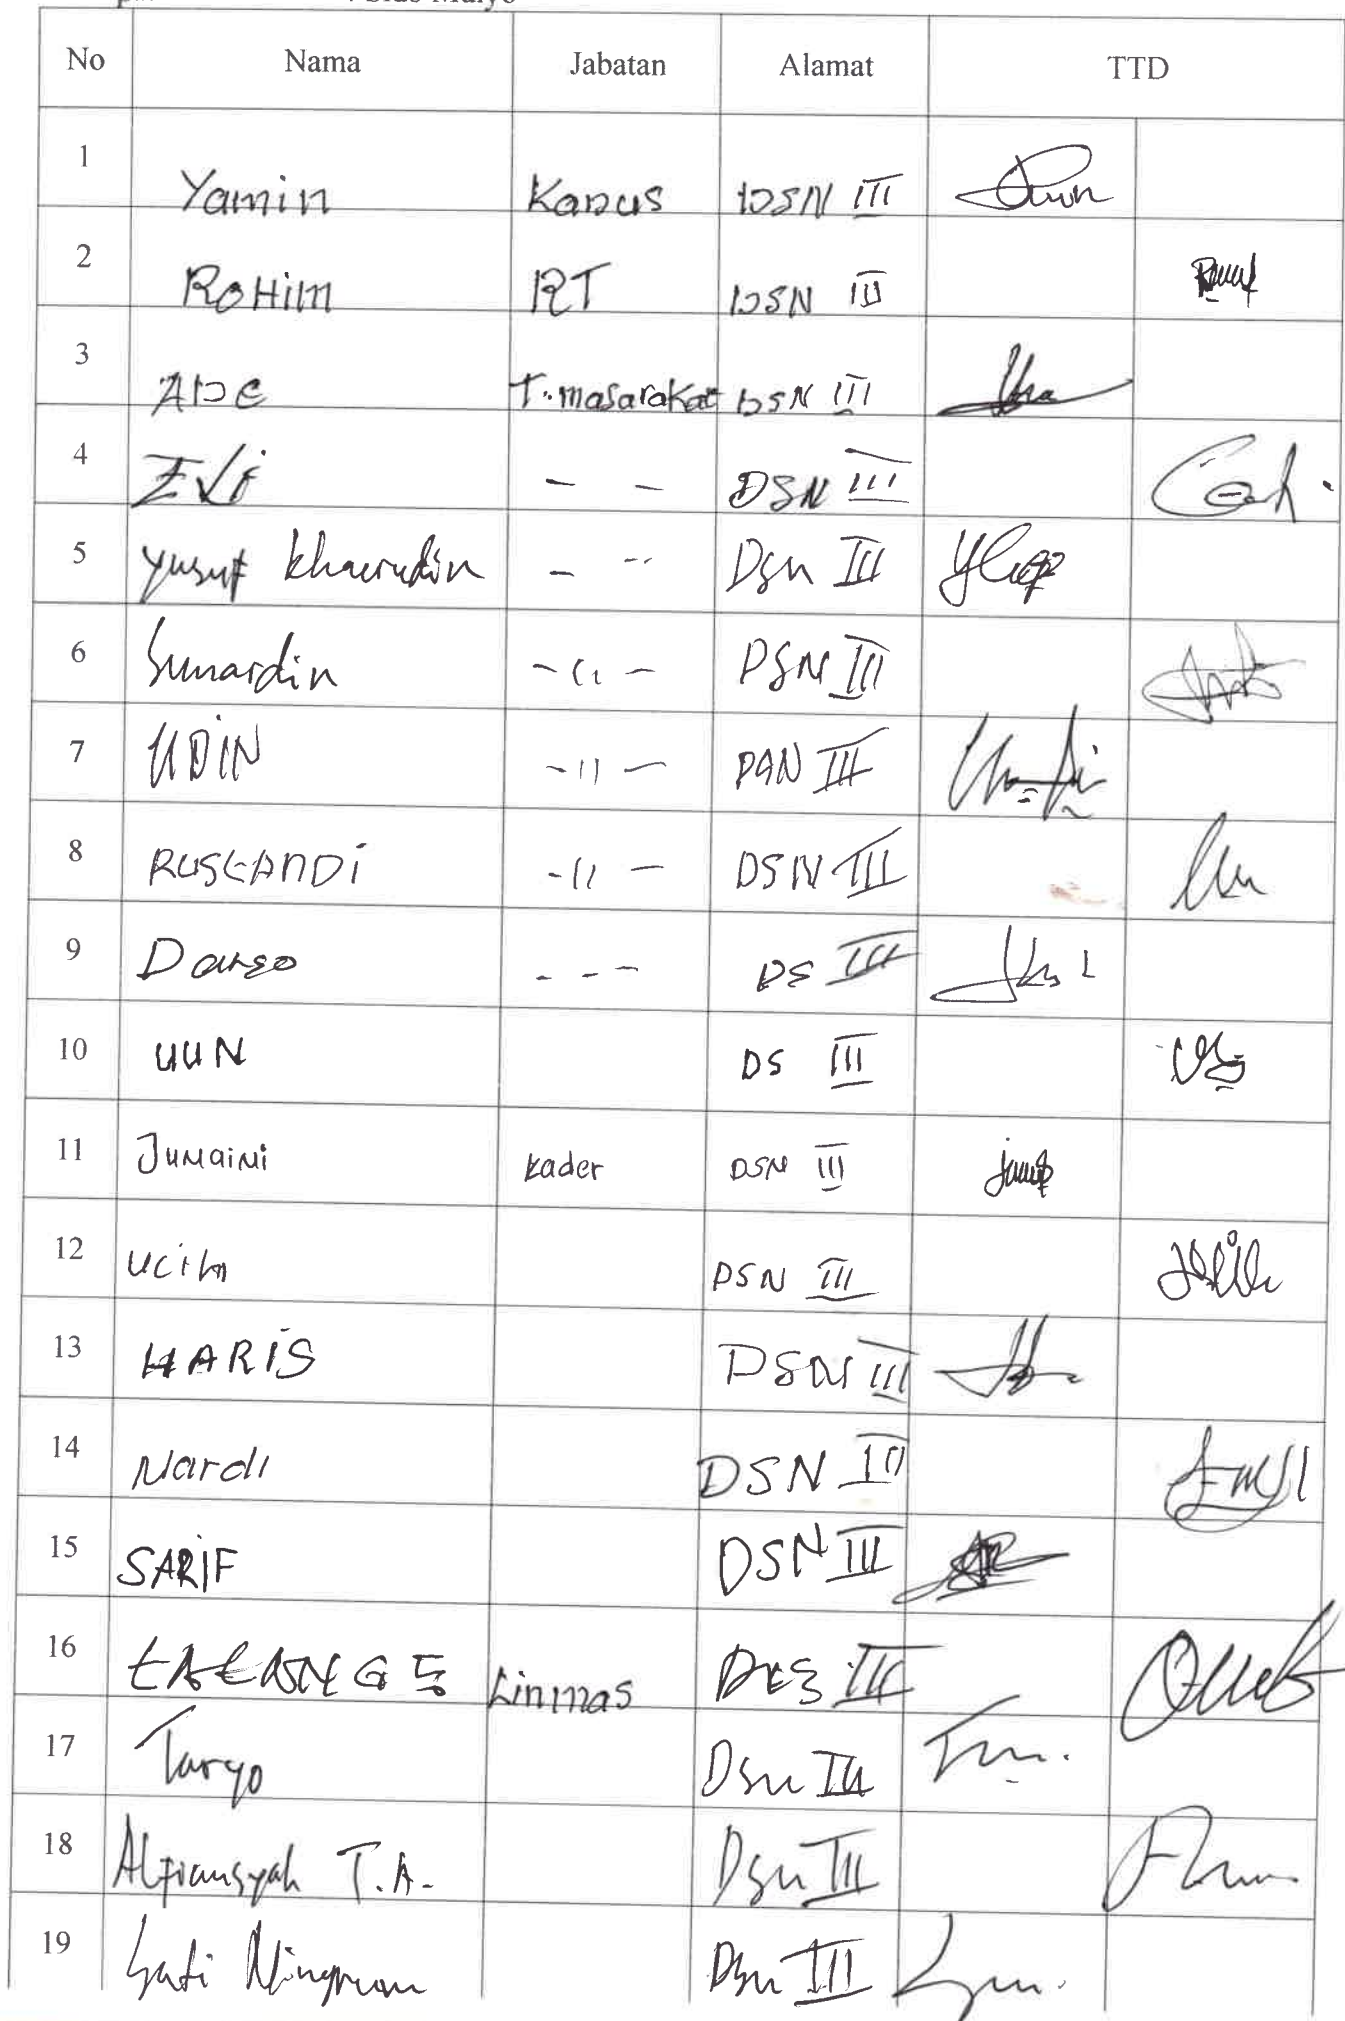 No Nama Jabatan Alamat TTD
1 Yamin Kadus DSN III
2 ROHim RT DSN III
3 ADe T.masarakat DSN III
4 Evi - - DSN III
5 Yusuf khaerudin - - Dsn III
6 Sunardin - 11 - DSN III
7 UDIN - 11 - III
8 RUSTANDi - 11 - DSN III
9 Darso - - - DS III
10 UUN DS III
11 Jumaini kader DSN III
12 ucih DSN III
13 HARIS DSN III
14 Nardi DSN III
15 SARIF DSN III
16 Linmas III
17 Taryo Dsn III
18 Alfiansyah T.A. Dsn III
19 Ningrum Dsn III